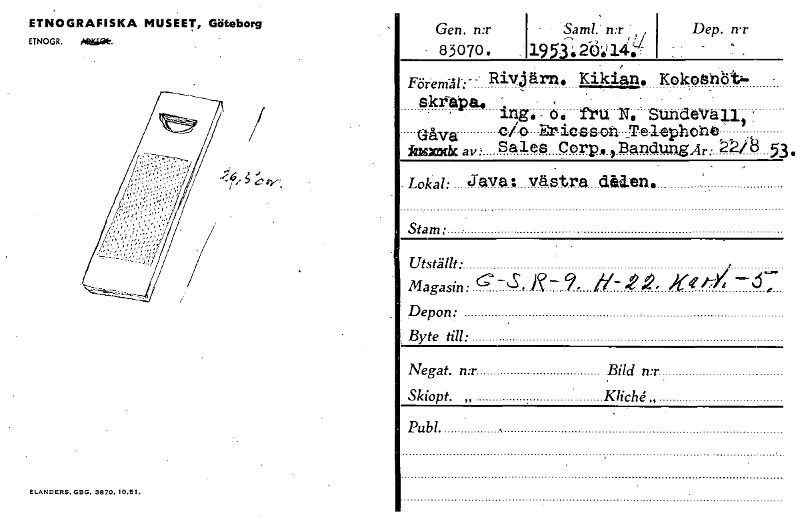 ETNOGRAFISKA MUSEET, Göteborg
ETNOGR.
26,5 cm.
ELANDERS, GBG. 3870, 10.51.
Gen. n:r Saml. n:r Dep. n:r
83070. 1953.20.14.
Föremål: Rivjärn. Kikian. Kokosnöt-
skrapa.
ing. o. fru N. Sundevall,
Gåva c/o Ericsson Telephone
av: Sales Corp., Bandung År: 22/8 53.
Lokal: Java: västra delen.
Stam:
Utställt:
Magasin: G-S. R-9. H-22. Kart.-5.
Depon:
Byte till:
Negat. n:r Bild n:r
Skiopt. „ Kliché „
Publ.